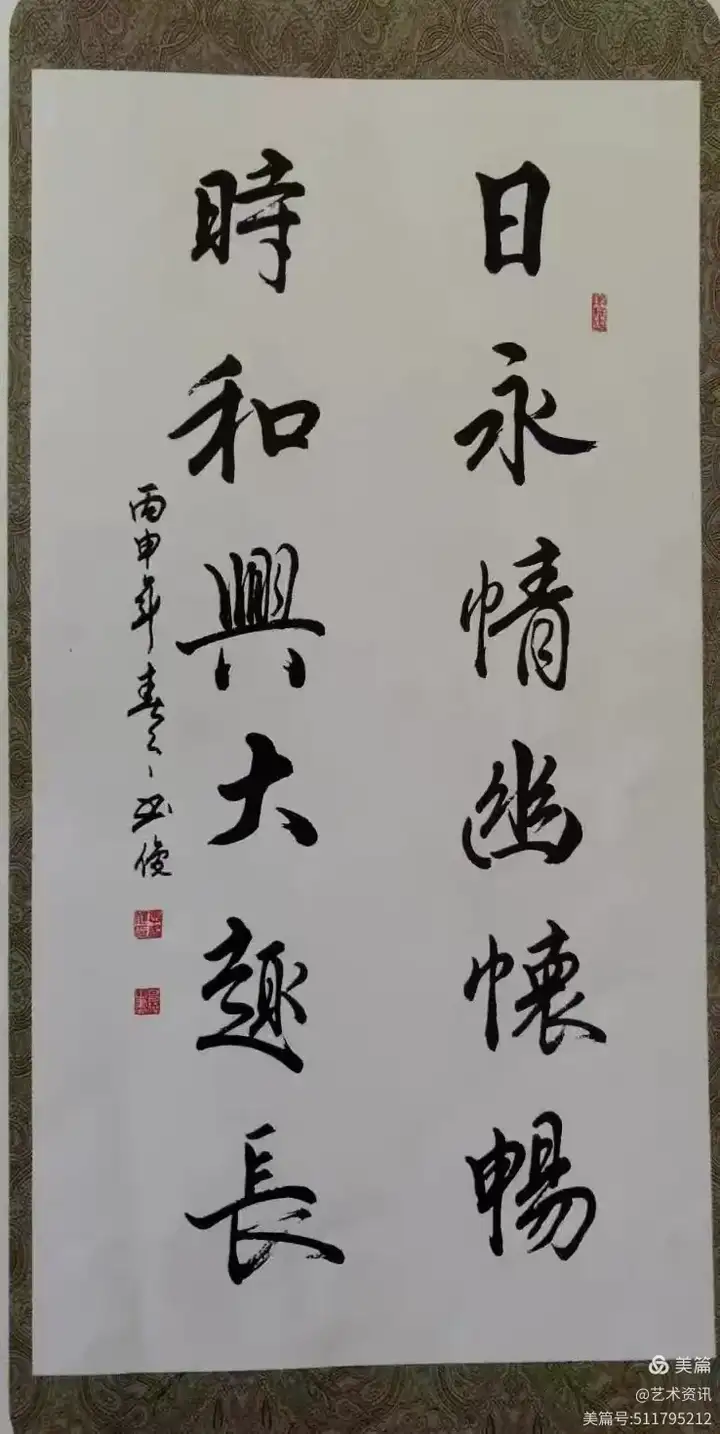 日永情幽懷暢
時和興大趣長
丙申年春
美篇
@艺术资讯
美篇号:511795212